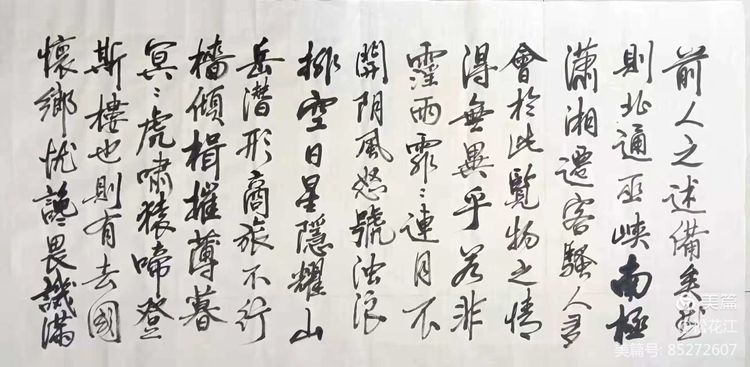 前人之述備矣然
則北通巫峽南極
瀟湘遷客騷人多
會於此覽物之情
得無異乎若非
霪雨霏〻連月不
開阴風怒號浊浪
排空日星隱耀山
岳潛形商旅不行
檣傾楫摧薄暮
冥〻虎嘯猿啼登
斯樓也則有去國
懷鄉忧讒畏譏滿
美篇
松花江
美篇号: 85272607